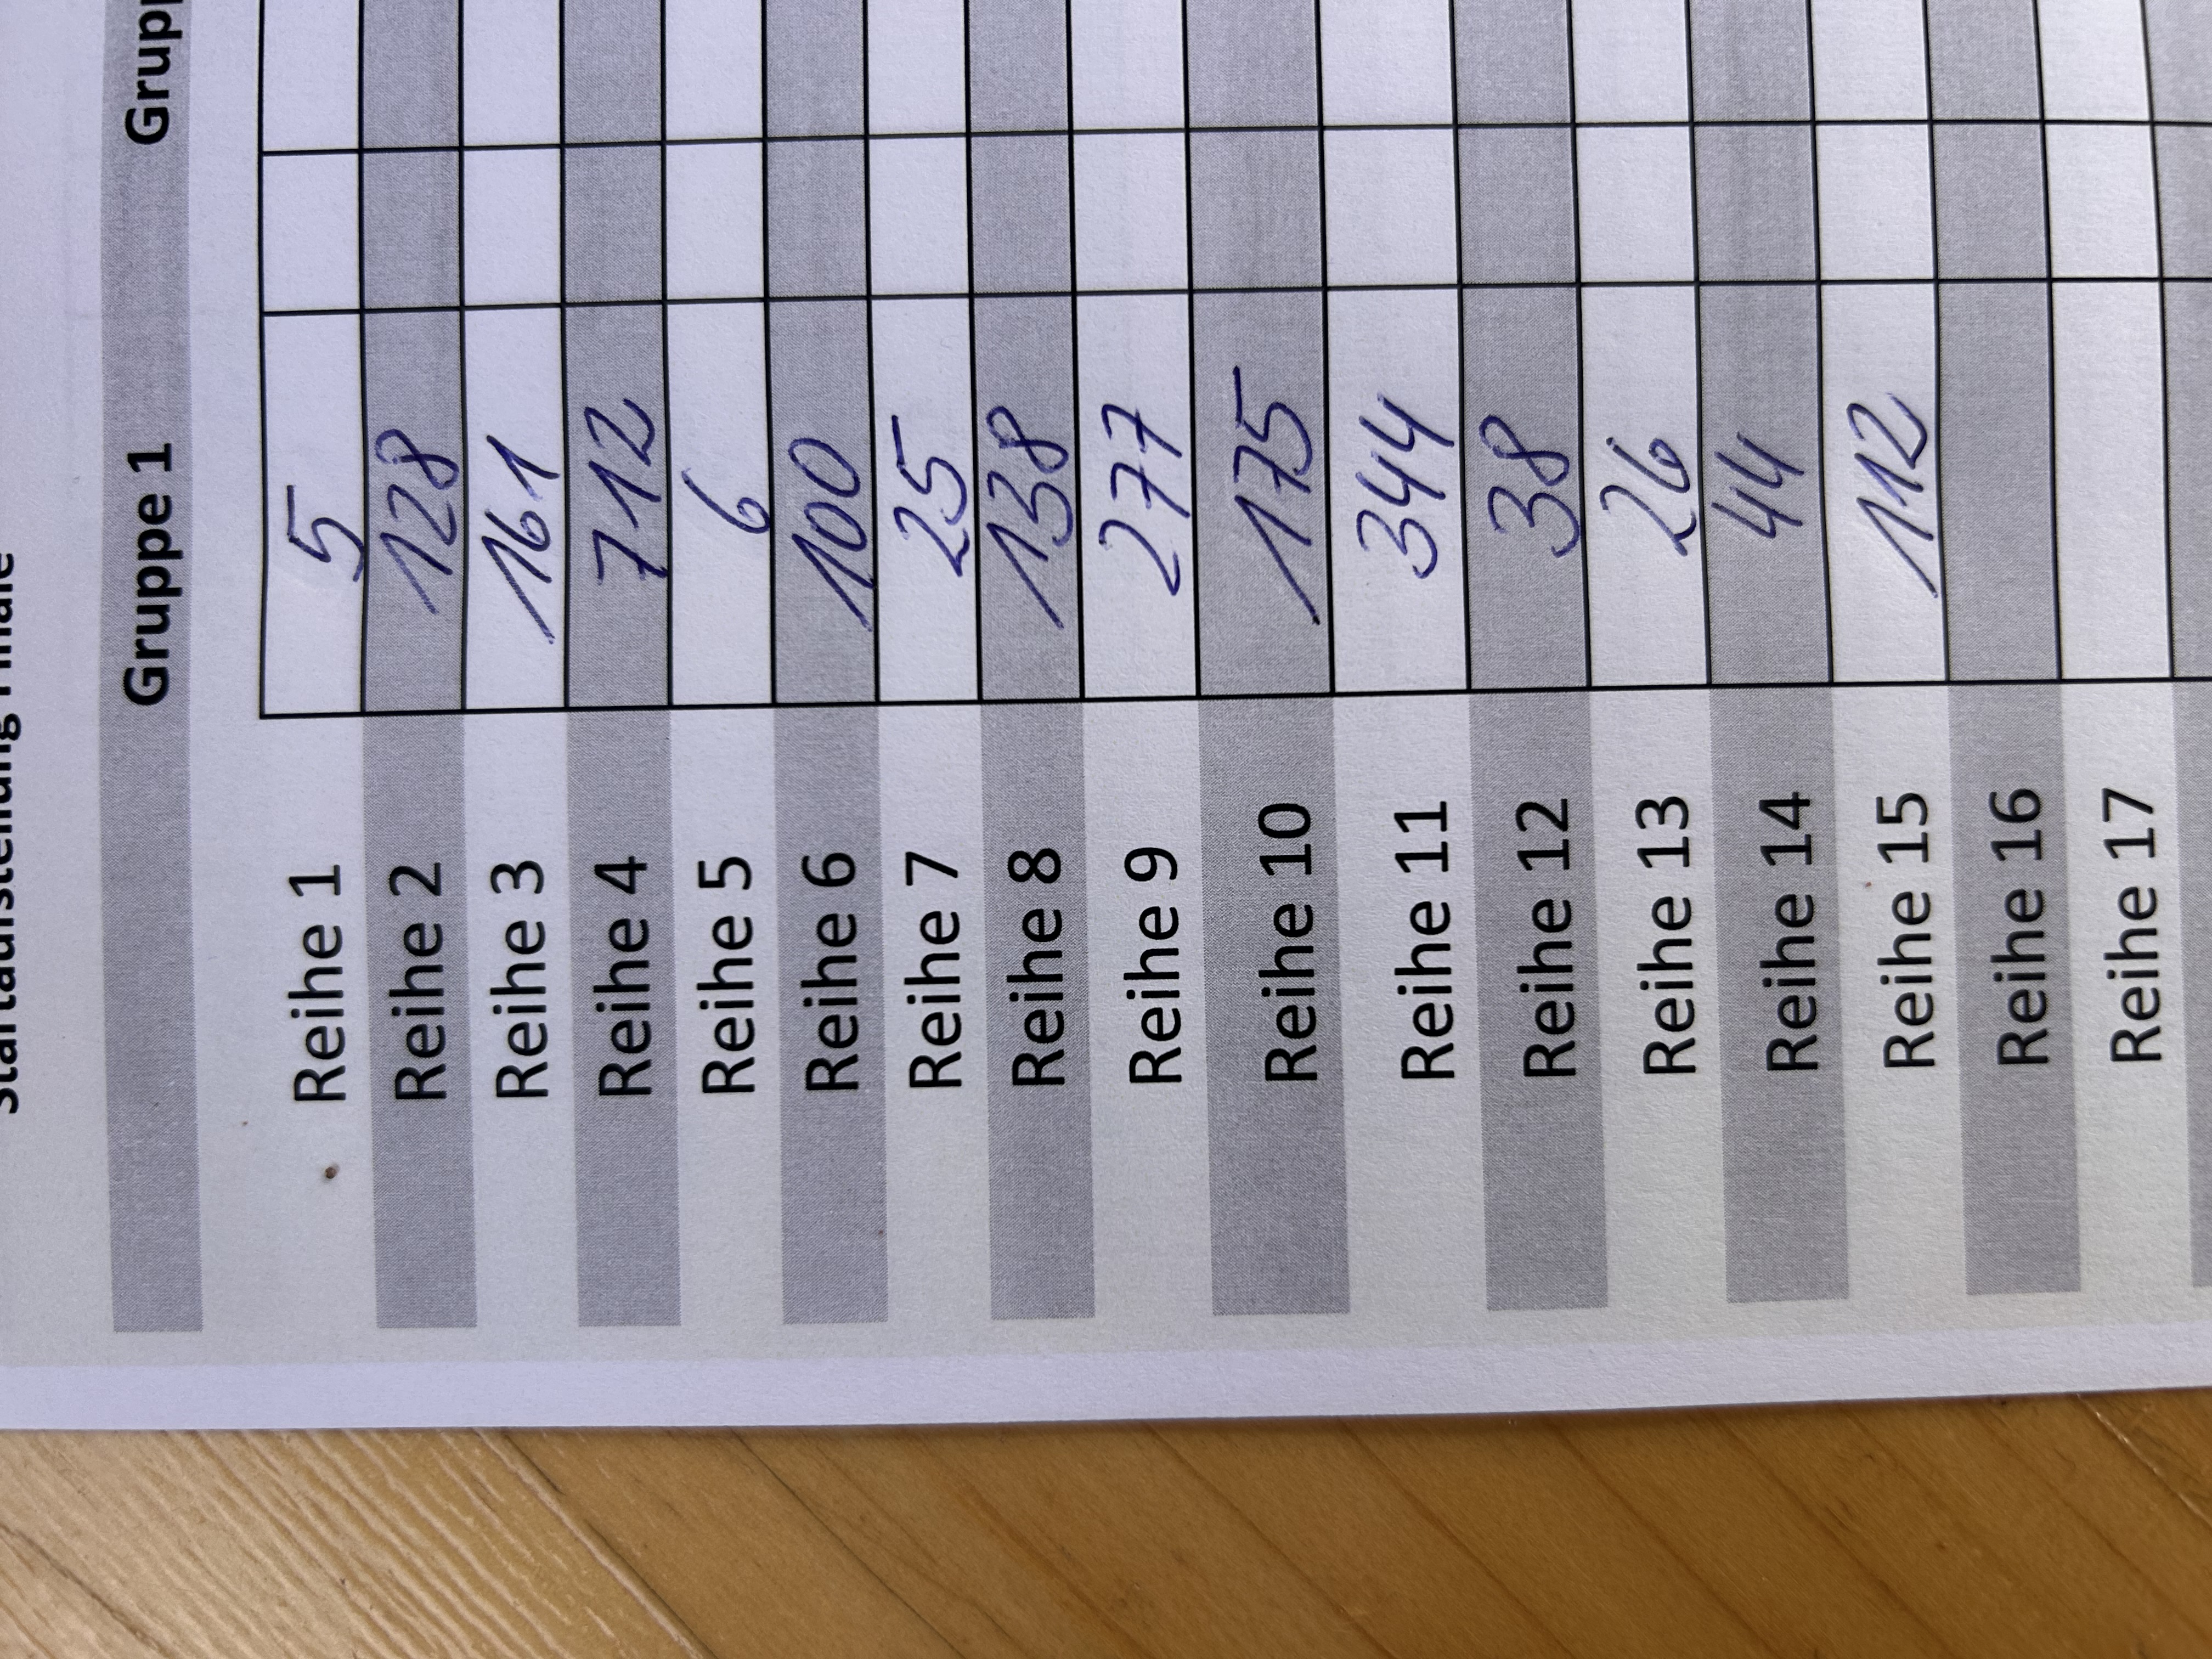 Startaufstellung Finale
Gruppe 1 Grupp
Reihe 1 5
Reihe 2 128
Reihe 3 161
Reihe 4 712
Reihe 5 6
Reihe 6 100
Reihe 7 25
Reihe 8 138
Reihe 9 277
Reihe 10 175
Reihe 11 344
Reihe 12 38
Reihe 13 26
Reihe 14 44
Reihe 15 112
Reihe 16
Reihe 17